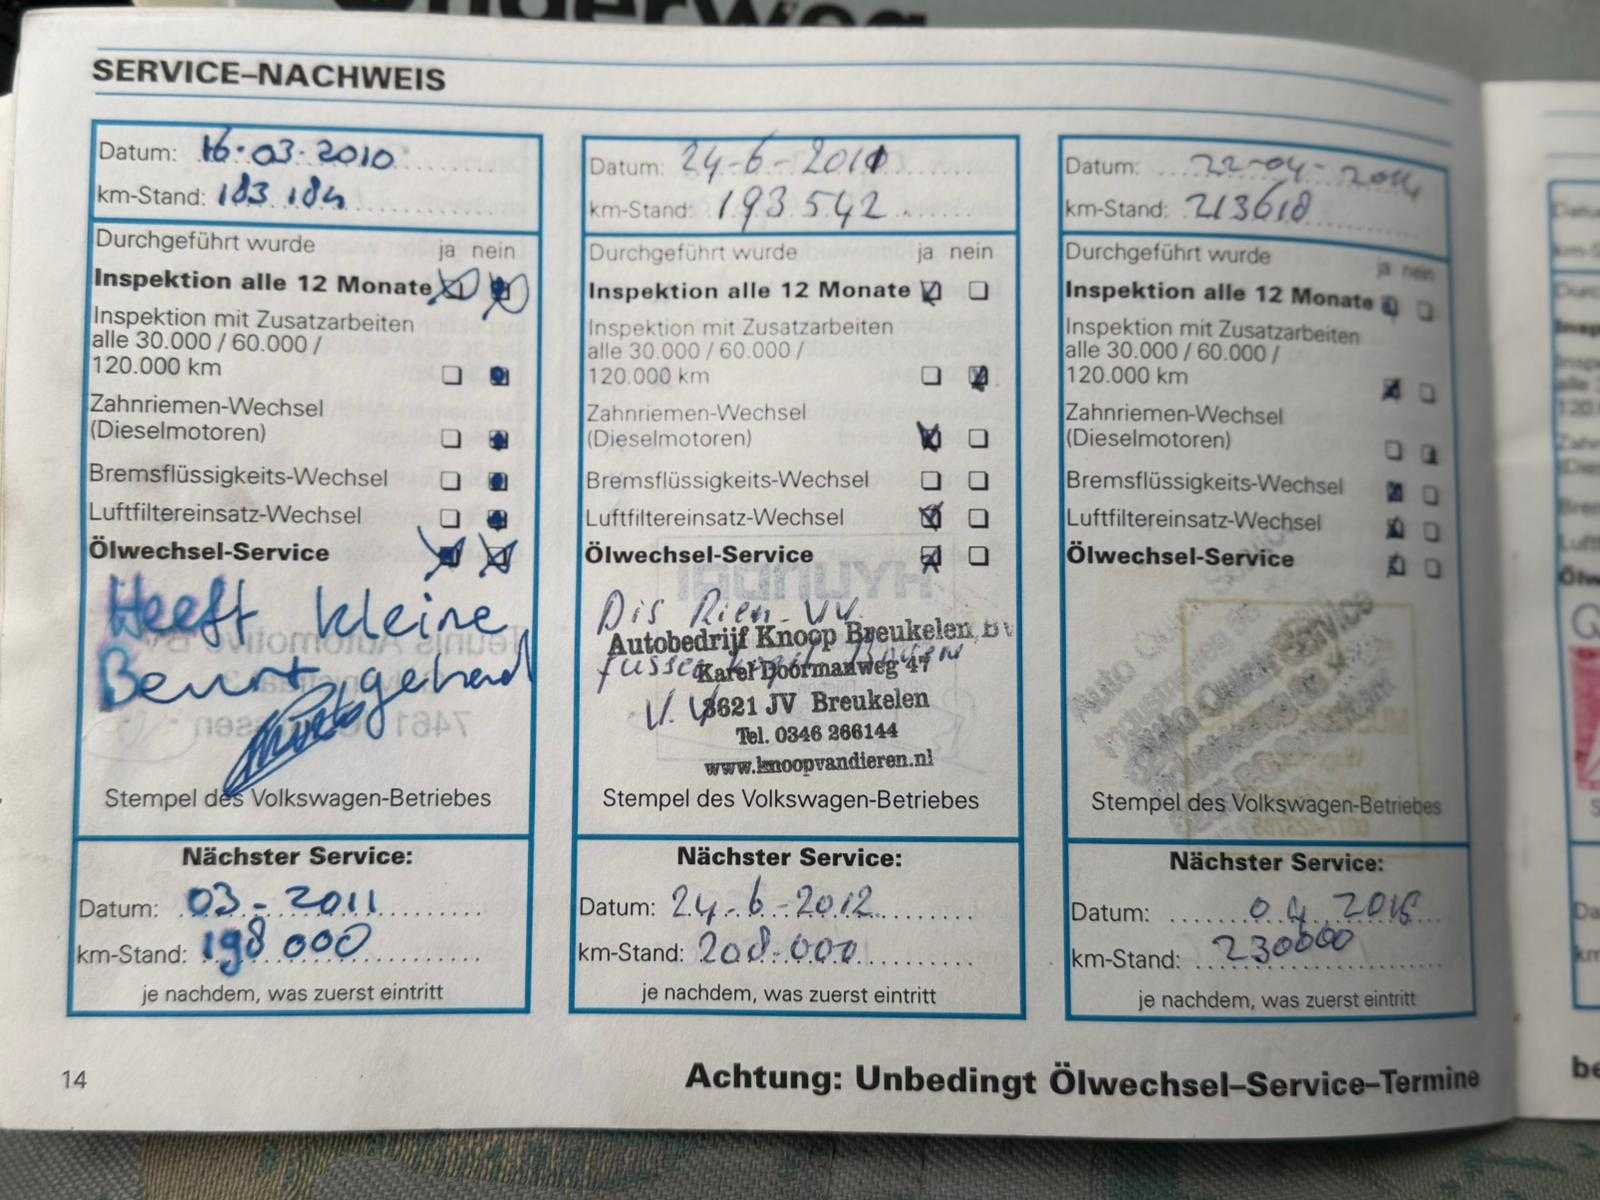 SERVICE–NACHWEIS
Datum: 16-03-2010
km-Stand: 183.184
Durchgeführt wurde ja nein
Inspektion alle 12 Monate
Inspektion mit Zusatzarbeiten
alle 30.000 / 60.000 /
120.000 km
Zahnriemen-Wechsel
(Dieselmotoren)
Bremsflüssigkeits-Wechsel
Luftfiltereinsatz-Wechsel
Ölwechsel-Service
Heeft kleine
Beurt gehad
Stempel des Volkswagen-Betriebes
Nächster Service:
Datum: 03-2011
km-Stand: 198 000
je nachdem, was zuerst eintritt
Datum: 24-6-2011
km-Stand: 193.542
Durchgeführt wurde ja nein
Inspektion alle 12 Monate
Inspektion mit Zusatzarbeiten
alle 30.000 / 60.000 /
120.000 km
Zahnriemen-Wechsel
(Dieselmotoren)
Bremsflüssigkeits-Wechsel
Luftfiltereinsatz-Wechsel
Ölwechsel-Service
Dis Riem VV
Autobedrijf Knoop Breukelen BV
Karel Doormanweg 47
3621 JV Breukelen
Tel. 0346 266144
www.knoopvandieren.nl
Stempel des Volkswagen-Betriebes
Nächster Service:
Datum: 24-6-2012
km-Stand: 208.000
je nachdem, was zuerst eintritt
Datum: 22-04-2014
km-Stand: 213618
Durchgeführt wurde ja nein
Inspektion alle 12 Monate
Inspektion mit Zusatzarbeiten
alle 30.000 / 60.000 /
120.000 km
Zahnriemen-Wechsel
(Dieselmotoren)
Bremsflüssigkeits-Wechsel
Luftfiltereinsatz-Wechsel
Ölwechsel-Service
Stempel des Volkswagen-Betriebes
Nächster Service:
Datum: 04 2015
km-Stand: 230000
je nachdem, was zuerst eintritt
14
Achtung: Unbedingt Ölwechsel–Service–Termine